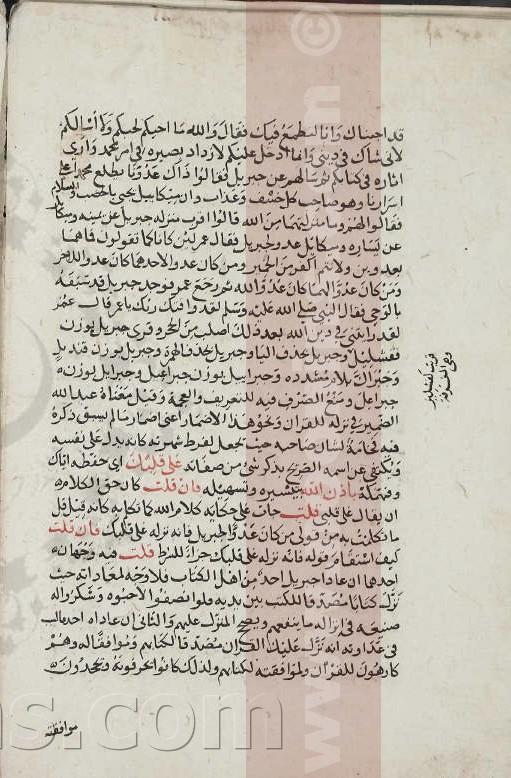 قد احببناك وانا لنطمع فيك فقال والله ما احبكم لحبكم ولا أسألكم
لأنى شاك فى دينى وانما ادخل عليكم لازداد بصيرة فى امر محمد وارى
اثاره فى كتابكم ثم سالهم عن جبريل فقالوا ذاك عدونا يطلع محمدا على
اسرارنا وهو صاحب كل خسف وعذاب وان ميكاييل يجئ بالخصب والسلام
فقال لهم وما منزلتهما من الله قالوا اقرب منزلة جبريل عن يمينه وميكاييل
عن يساره وميكاييل عدو لجبريل فقال عمر لئن كانا كما تقولون فما هما
بعدوين ولانتم اكفر من الحمير ومن كان عدو لاحدهما كان عدو للاخر
ومن كان عدوا لهما كان عدوا لله ثم رجع عمر فوجد جبريل قد سبقه
بالوحى فقال النبى صلى الله عليه وسلم لقد وافقك ربك يا عمر قال عمر
لقد رايتنى فى دين الله بعد ذلك اصلب من الحجر وقرى جبريل بوزن
قفشليل وجبريل بحذف اليا وجبريل بحذف الهمزة وجبريل بوزن قنديل
وجبرال بلام مشدده وجبراييل بوزن جبراعيل وجبرايل بوزن
جبراعل ومنع الصرف فيه للتعريف والعجمة وقيل معناه عبد الله
الضمير فى نزله للقران ونحو هذا الاضمار اعنى اضمار ما لم يسبق ذكره
فيه فخامة لشان صاحبه حيث يجعل لفرط شهرته كانه يدل على نفسه
ويكتفى عن اسمه الصريح بذكر شئ من صفاته على قلبك اى حفظه اياك
وفهمكه باذن الله بتيسيره وتسهيله فان قلت كان حق الكلام
ان يقال على قلبى قلت جات على حكاية كلام الله كما تكلم به كانه قيل قل
ما تكلمت به من قولى من كان عدوا لجبريل فانه نزله على قلبك فان قلت
كيف استقام قوله فانه نزله على قلبك جزاء للشرط قلت فيه وجهان
احدهما ان عادا جبريل احد من اهل الكتاب فلا وجه لمعاداته حيث
نزل كتابا مصدقا للكتب بين يديه فلو انصفوا لاحبوه وشكروا له
صنيعه فى انزاله ما ينفعهم ويصحح المنزل عليهم والثانى ان عاداه احد فالسبب
فى عداوته انه نزل عليك القران مصدقا لكتابهم وموافقا له وهم
كارهون للقران ولموافقته لكتابهم ولذلك كانوا يحرفونه ويجحدون
موافقته